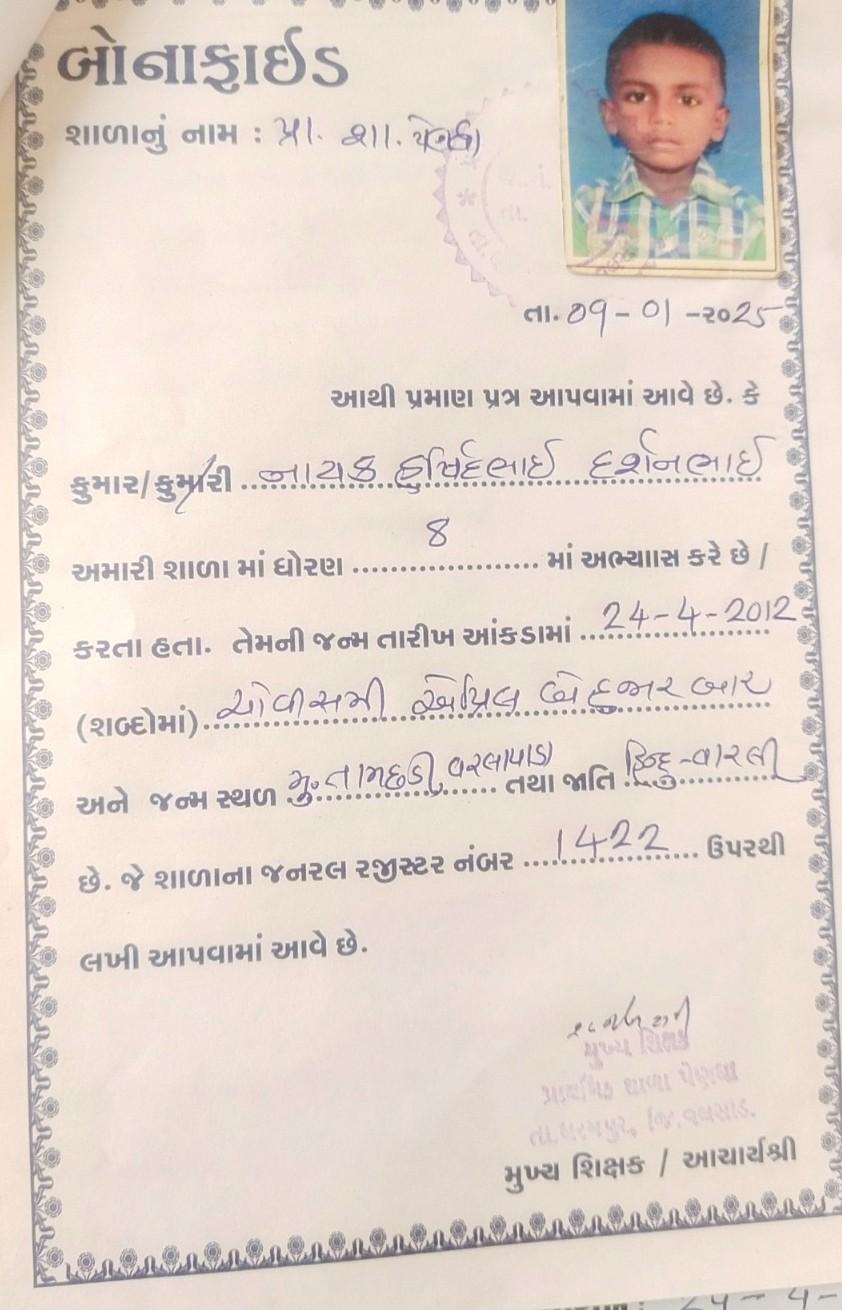 બોનાફાઈડ
શાળાનું નામ : પ્રા. શા. પેણધા
તા. 09-01-૨૦25
આથી પ્રમાણ પત્ર આપવામાં આવે છે. કે
કુમાર/કુમારી નાયક હર્ષિદભાઈ દર્શનભાઈ
અમારી શાળા માં ધોરણ 8 માં અભ્યાાસ કરે છે /
કરતા હતા. તેમની જન્મ તારીખ આંકડામાં 24-4-2012
(શબ્દોમાં) ચોવીસમી એપ્રિલ બે હજાર બાર
અને જન્મ સ્થળ મું. તામછડી, વરલાપાડા તથા જાતિ હિન્દુ-વારલી
છે. જે શાળાના જનરલ રજીસ્ટર નંબર 1422 ઉપરથી
લખી આપવામાં આવે છે.
મુખ્ય શિક્ષક
પ્રાથમિક શાળા પેણધા
તા.ધરમપુર, જિ.વલસાડ.
મુખ્ય શિક્ષક / આચાર્યશ્રી